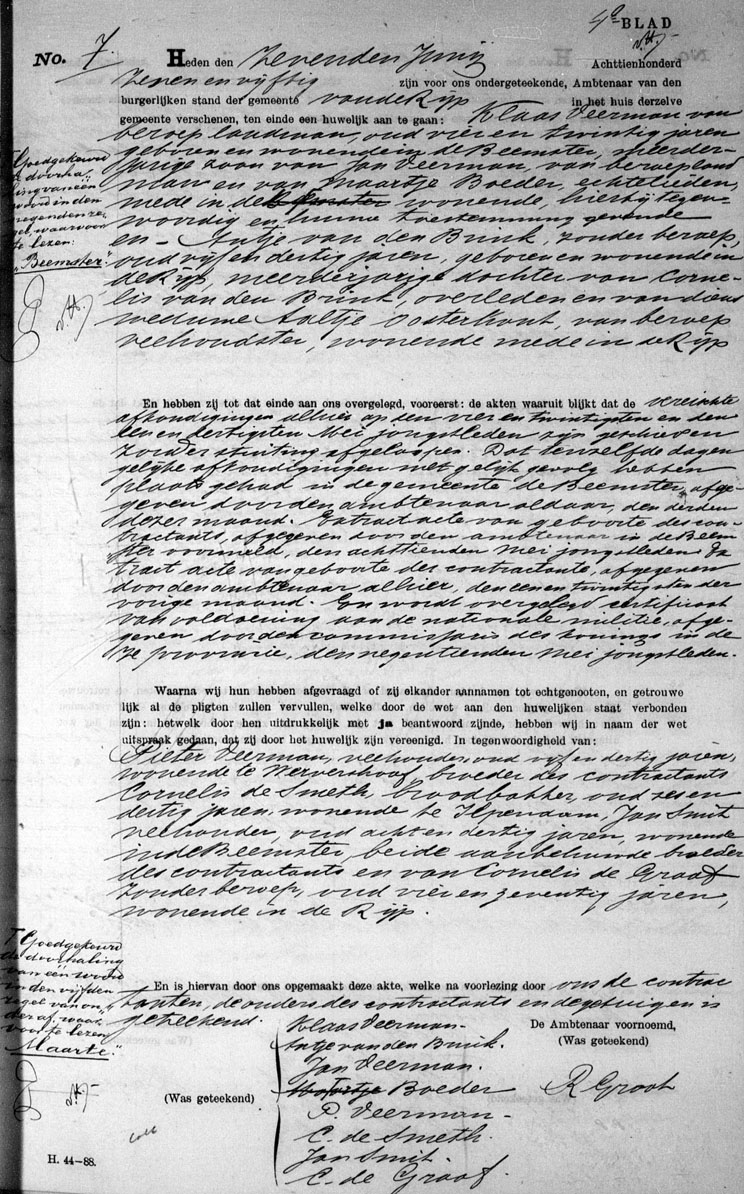 4e BLAD
No. 7. Heden den zevenden Junij Achttienhonderd
zeven en vijftig zijn voor ons ondergeteekende, Ambtenaar van den
burgerlijken stand der gemeente van de Rijp in het huis derzelve
gemeente verschenen, ten einde een huwelijk aan te gaan: Klaas Veerman van
beroep landman, oud vier en twintig jaren
geboren en wonende in de Beemster, meerder-
jarige zoon van Jan Veerman, van beroep land
man en van Maartje Boeder, echtelieden,
mede in de Beemster wonende, hierbij tegen-
woordig en hunne toestemming gevende
en - Antje van den Brink, zonder beroep,
oud vijf en dertig jaren, geboren en wonende in
de Rijp, meerderjarige dochter van Corne-
lis van den Brink, overleden en van diens
weduwe Aaltje Oosterhout, van beroep
veehoudster, wonende mede in de Rijp
Goedgekeurd
de doorha„
ling van één
woord in den
negenden re„
gel, waarvoor
te lezen:
„Beemster”
En hebben zij tot dat einde aan ons overgelegd, vooreerst: de akten waaruit blijkt dat de vereischte
afkondigingen alhier op den vier en twintigsten en den
een en dertigsten Mei jongstleden zijn geschied en
zonder stuiting afgeloopen. Dat tenzelfde dagen
gelijke afkondigingen met gelijk gevolg hebben
plaats gehad in de gemeente de Beemster, afge-
geven door den ambtenaar aldaar, den derden
dezer maand. Extract acte van geboorte des con-
tractants, afgegeven door den ambtenaar in de Beem
ster voormeld, den achttienden Mei jongstleden. Ex
tract acte van geboorte des contractante, afgegeven
door den ambtenaar alhier, den een en twintigsten der
vorige maand. En wordt overgelegd certificaat
van voldoening aan de nationale militie, afge-
geven door den commissaris des Konings in de
ze provincie, den negentienden Mei jongstleden.
Waarna wij hun hebben afgevraagd of zij elkander aannamen tot echtgenooten, en getrouwe
lijk al de pligten zullen vervullen, welke door de wet aan den huwelijken staat verbonden
zijn: hetwelk door hen uitdrukkelijk met ja beantwoord zijnde, hebben wij in naam der wet
uitspraak gedaan, dat zij door het huwelijk zijn vereenigd. In tegenwoordigheid van:
Pieter Veerman, veehouder, oud vijf en dertig jaren,
wonende te Wervershoof, broeder des contractants
Cornelis de Smeth, broodbakker, oud zes en
dertig jaren, wonende te Ilpendam, Jan Smit
veehouder, oud acht en dertig jaren, wonende
in de Beemster, beide aanbehuwde broeder
des contractants en van Cornelis de Graaf
zonder beroep, oud vier en zeventig jaren,
wonende in de Rijp.
Goedgekeurd
de doorhaling
van één woord
in den vijfden
regel van on„
der af, waar
voor te lezen
„Maartje”
En is hiervan door ons opgemaakt deze akte, welke na voorlezing door ons de contrac
tanten, de ouders des contractants en de getuigen is
geteekend.
Klaas Veerman.
Antje van den Brink.
Jan Veerman.
Maartje Boeder
P. Veerman.
C. de Smeth.
Jan Smit.
C. de Graaf.
(Was geteekend)
De Ambtenaar voornoemd,
(Was geteekend)
R Groot
H. 44-88.